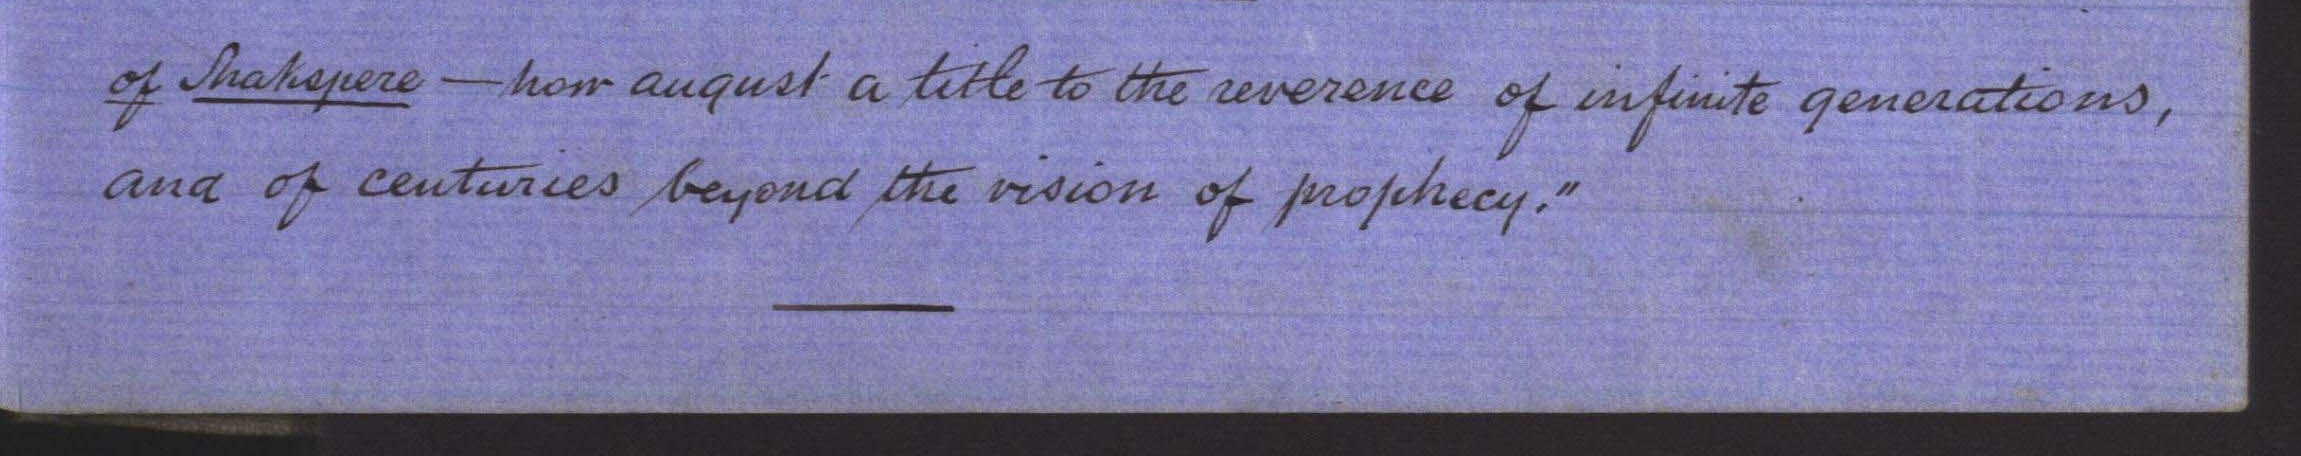 of Shakspere — how august a title to the reverence of infinite generations,
and of centuries beyond the vision of prophecy."